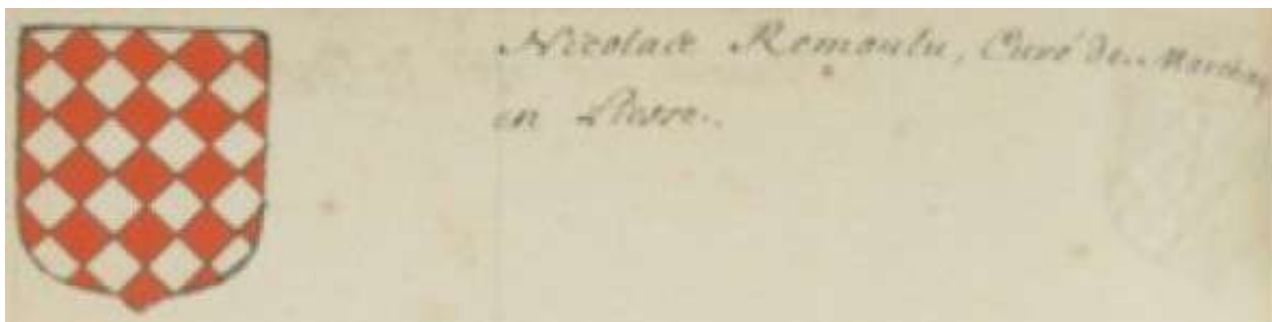 Nicolas Remoulu, Curé de Marcenay
en Liesse.